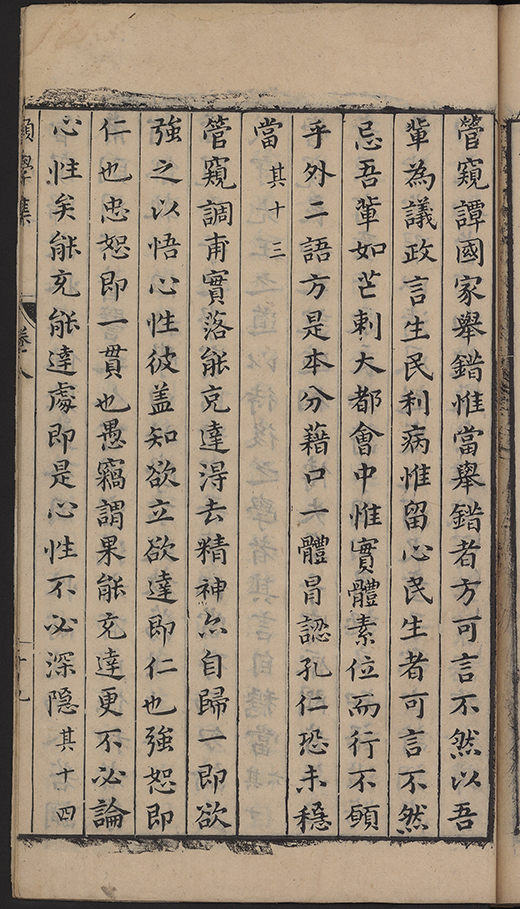 管窺譚國家舉錯惟當舉錯者方可言不然以吾
輩為議政言生民利病惟留心民生者可言不然
忌吾輩如芒刺大都會中惟實體素位而行不願
乎外二語方是本分藉口一體冒認孔仁恐未穩
當 其十三
管窺調甫實落能充達得去精神亦自歸一即欲
強之以悟心性彼蓋知欲立欲達即仁也強恕即
仁也忠恕即一貫也愚竊謂果能充達更不必論
心性矣能充能達處即是心性不必深隱 其十四
願學集 卷八 十九